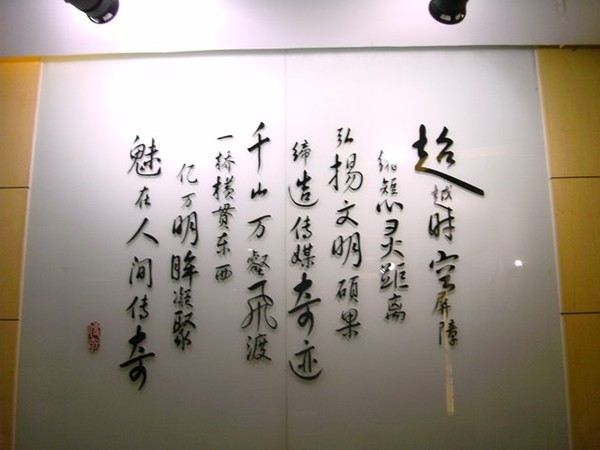 超越时空屏障
缩短心灵距离
弘扬文明硕果
缔造传媒奇迹
千山万壑飞渡
一桥横贯东西
亿万明眸凝聚
魅在人间传奇